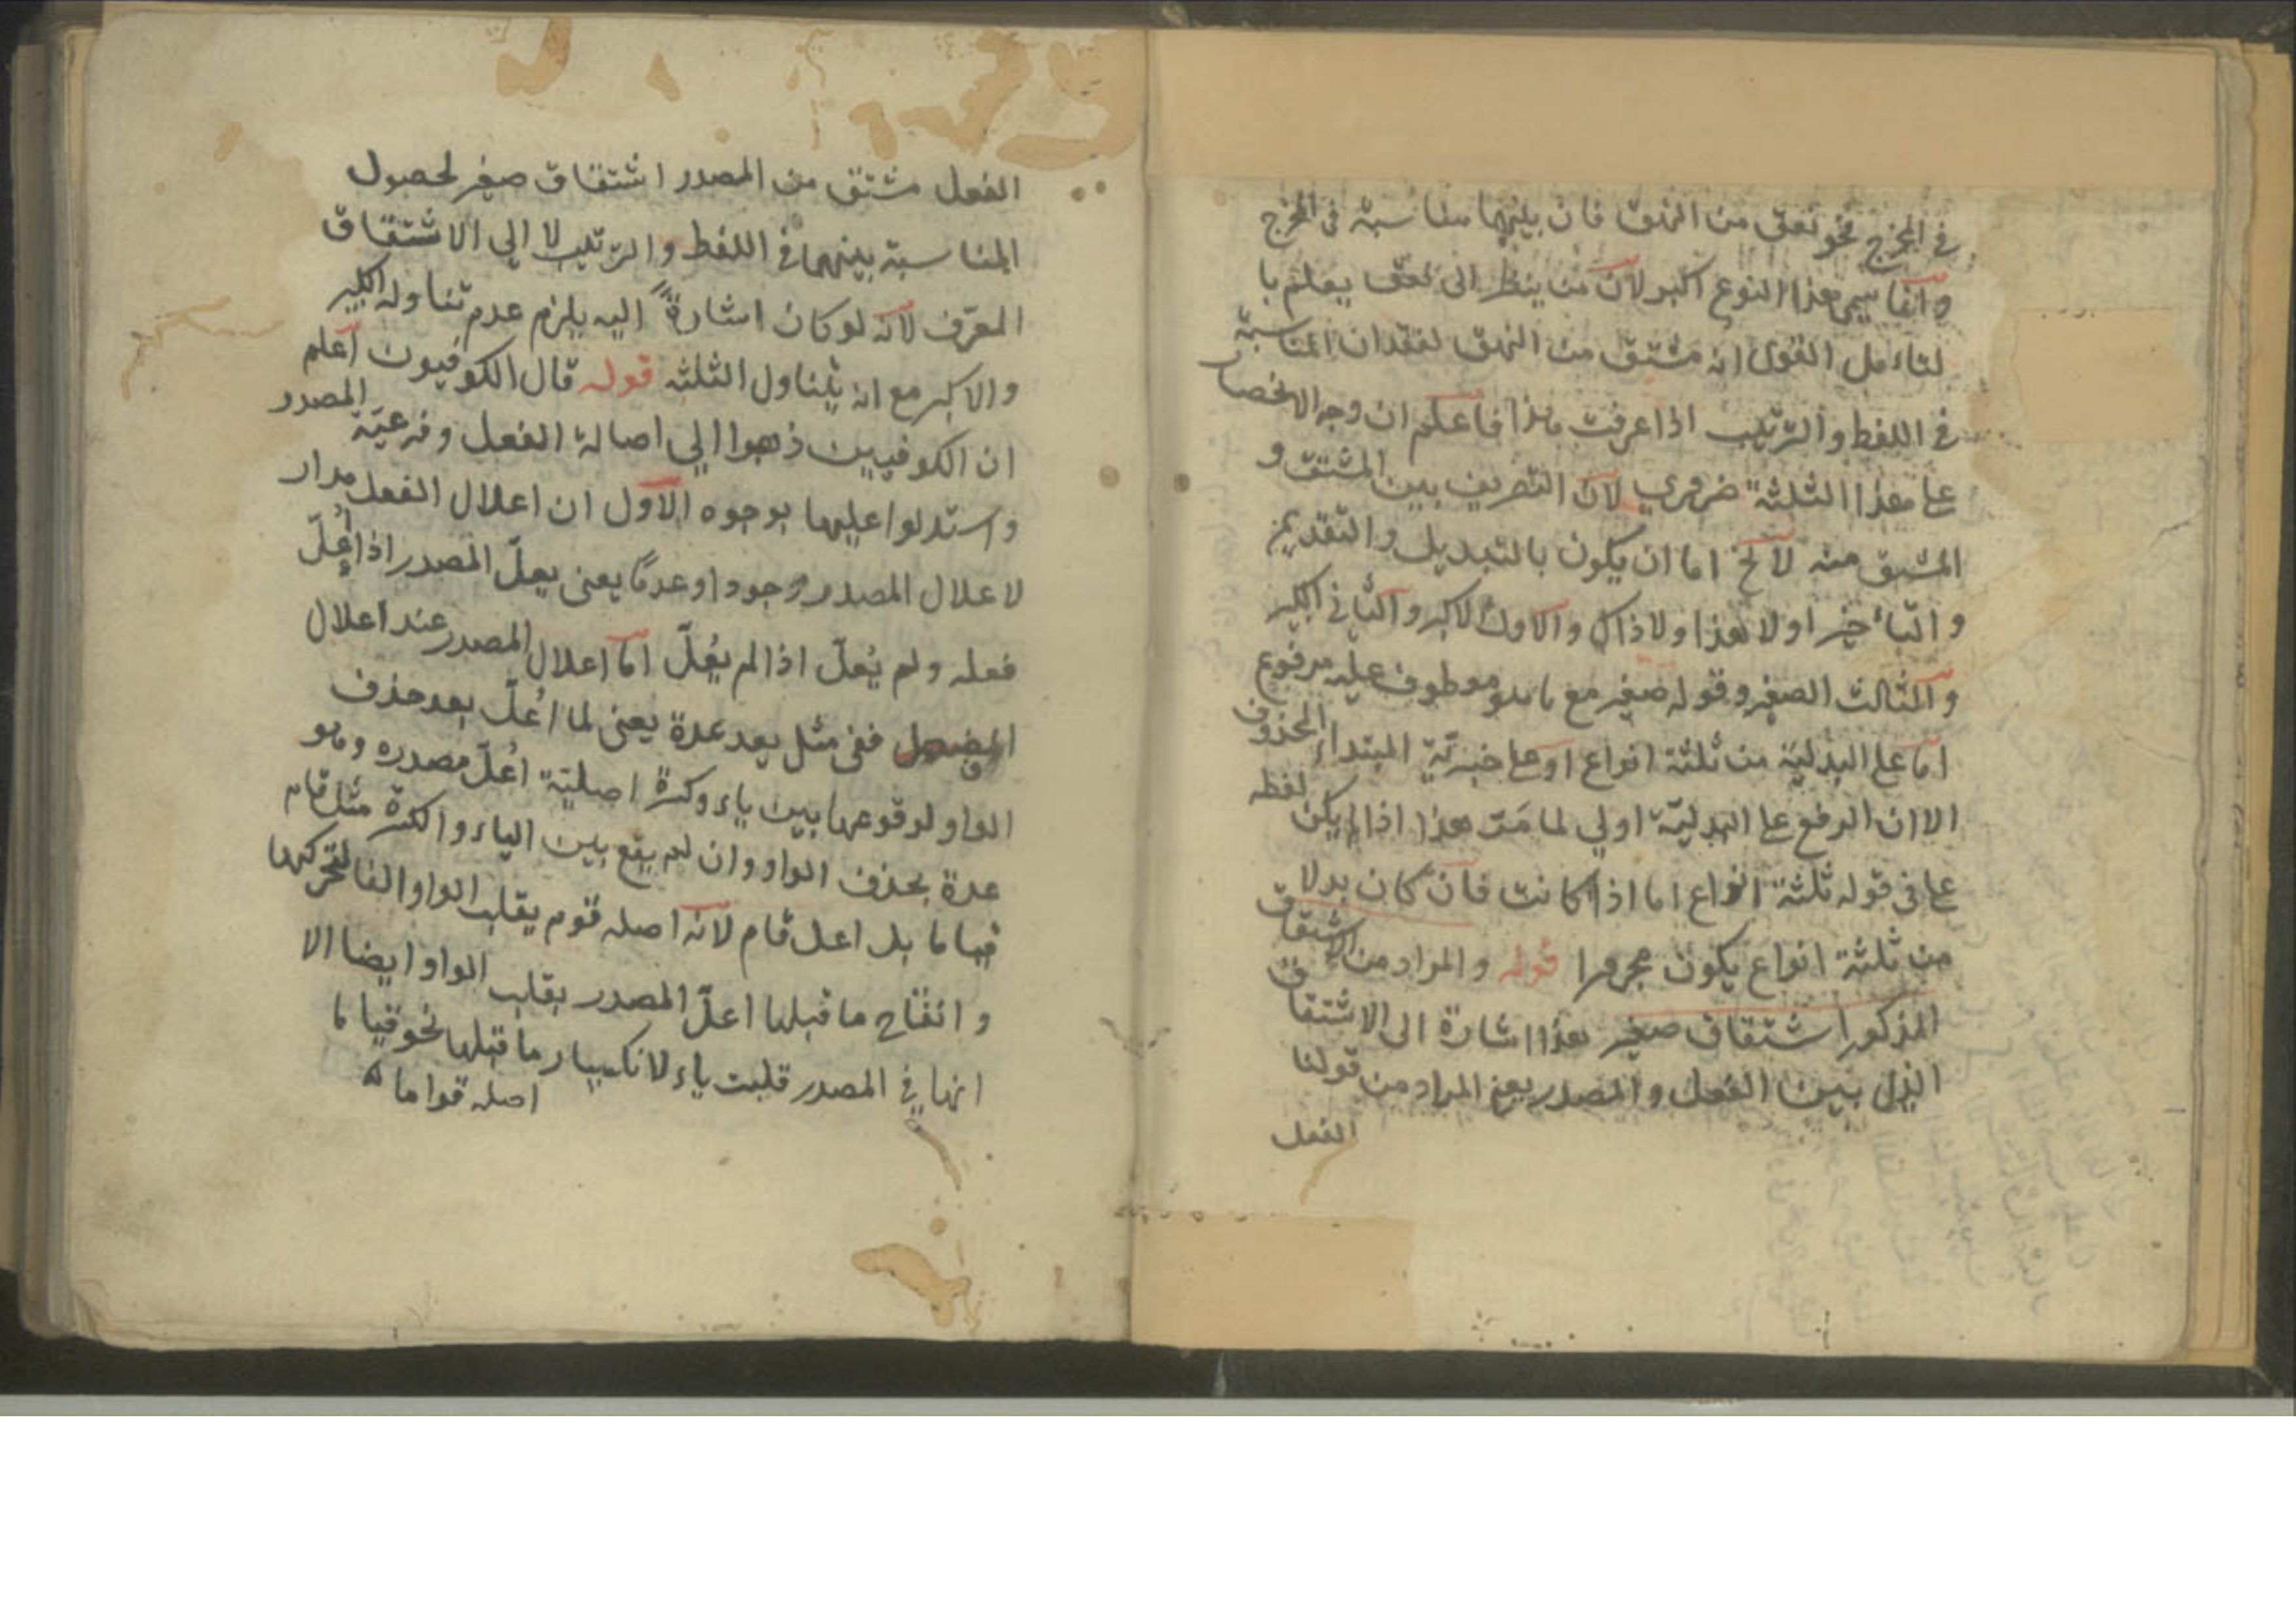 في المخرج نحو نعق من النهق فان بينهما مناسبة في المخرج
وانما سمي هذا النوع اكبر لان من ينظر الى نعق يعلم با
لتاءمل القول انه مشتق من النهق لفقدان المناسبة
في اللفظ والترتيب اذا عرفت هذا فاعلم ان وجه الانحصار
على هذا الثلثة ضروري لان التصريف بين المشتق و
المشتق منه لا يخ اما ان يكون بالتبديل والتقديم
والتأخير او لا هذا ولا ذاك والاول الاكبر والثاني الكبير
والثالث الصغير وقوله صغير مع ما هو معطوف عليه مرفوع
اما على البدلية من ثلثة انواع او على خبرية المبتداء المحذوف
الا ان الرفع على البدلية اولي لما مر هذا اذا لم يكن لفظه
على في قوله ثلثة انواع اما اذا كانت فان كان بدلا
من ثلثة انواع يكون مجرورا قوله والمراد من الاشتقاق
المذكور اشتقاق صغير هذا اشارة الى الاشتقاق
الذي بين الفعل والمصدر يعني المراد من قولنا
الفعل
الفعل مشتق من المصدر اشتقاق صغير لحصول
المناسبة بينهما في اللفظ والترتيب لا الي الاشتقاق
المعرف لانه لو كان اشارة اليه يلزم عدم تناوله الكبير
والاكبر مع انه يتناول الثلثه قوله قال الكوفيون اعلم
ان الكوفيين ذهبوا الي اصالة الفعل وفرعية المصدر
واستدلوا عليهما بوجوه الاول ان اعلال الفعل مدار
لاعلال المصدر وجودا وعدما يعني يعل المصدر اذا اعل
فعله ولم يعل اذا لم يعل اما اعلال المصدر عند اعلال
ففي مثل يعد عدة يعني لما اعل يعد حذف
الواو لوقوعها بين ياء وكسرة اصلية اعل مصدره وهو
عدة بحذف الواو وان لم يقع بين الياء والكسرة مثل قام
قياما بل اعل قام لانه اصله قوم يقلب الواو الفا لتحركها
وانفتاح ما قبلها اعل المصدر بقلب الواو ايضا الا
انها في المصدر قلبت ياء لانكسار ما قبلها نحو قياما
اصله قواما